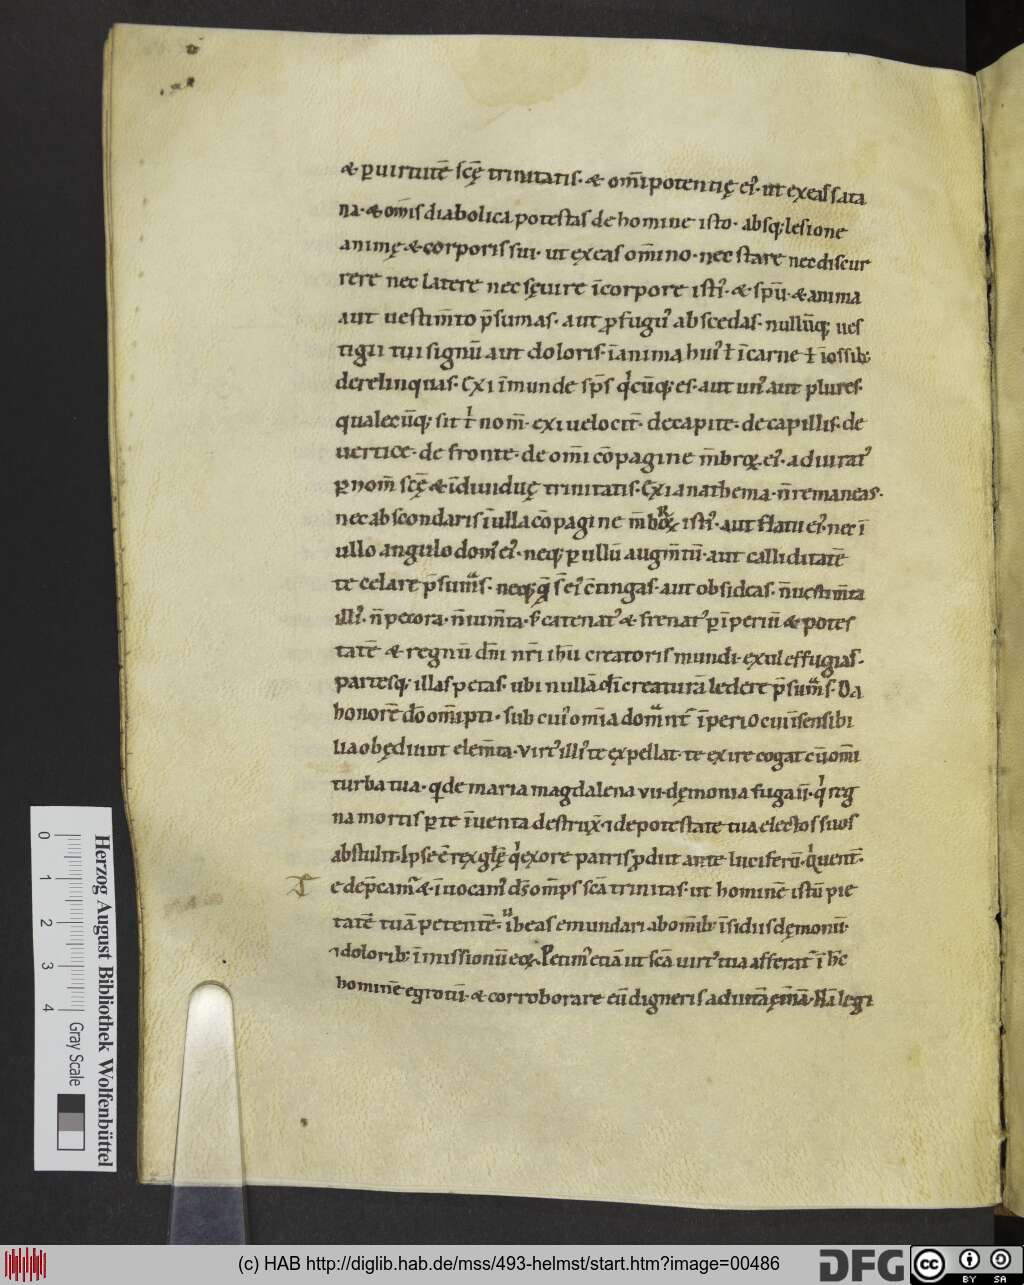 & ꝑ uirtutē scę̄ trinitatis· & om̄ipotentię ei᷒· ut exeas sata
na· & om̄is diabolica potestas de homine isto· absq; lesione
animę & corporis sui· ut exeas om̄ino· nec stare nec discur
rere nec latere nec sęuire īcorpore isti᷒· & spū· & anima
aut uestim̄to p̄sumas· aut ꝓfugu᷒ abscedas· nullūq; ues
tigii tui signū aut doloris· īanima hui᷒ ł īcarne ł īossib;
derelinquas· Exi īmunde sp̄s qͥcūq; es· aut un᷒ aut plures·
qualecūq; sit t̵ nom̄· exi uelocit̄· de capite· de capillis· de
uertice· de fronte· de om̄i cōpagine m̄broꝝ ei᷒· adiurat᷒
ꝑ nom̄ scę̄ & īdiuiduę trinitatis· Exi anathema· n̄ remaneas·
nec abscondaris ī ulla cōpagine m̄broꝝ isti᷒· aut flatu ei᷒· nec ī
ullo angulo dom᷒ ei᷒· neq; ꝑ ullū augm̄tū· aut calliditatē
te celare p̄sumas· neq; q̄ s̄ ei᷒ c̄tingas· aut obsideas· n̄ uestim̄ta
illi᷒· n̄ pecora· n̄ ium̄ta· s; catenat᷒ & frenat᷒ ꝑ īperiū & potes
tatē & regnū dn̄i nr̄i ih̄u creatoris mundi· exul effugias·
partesq; illas petas· ubi nullā dī creaturā ledere p̄sumas· Da
honorē dō om̄ipti· sub cui᷒ om̄ia domīant᷒ īperio cui īsensibi
lia obędiunt elem̄ta· Virt᷒ illi᷒ te expellat· te exire cogat cū om̄i
turba tua· q̄ de maria magdalena vii· dęmonia fugauit· qͥ reg
na mortis ꝑ te īuenta destrux̄· ⁊ de potestate tua electos suos
abstulit· Ipse ē rex glę̄ qͥ ex ore patris ꝓdiit ante luciferū· Qͥ uent̄·
Te dep̄cam᷒ & īuocam᷒ ds̄ omp̄s scā trinitas· ut hominē istū pie
tatē tuā petentē· iubeas emundari ab om̄ib; īsidiis dęmonū·
⁊ dolorib; īmissionū eoꝝ· Petim᷒ etiā ut scā uirt᷒ tua afferat᷒ ī hc̄
hominē egrotū· & corroborare eū digneris ad uitā ęt̄nā· Nā legi
Herzog August Bibliothek Wolfenbüttel
0 1 2 3 4 Gray Scale
(c) HAB http://diglib.hab.de/mss/493-helmst/start.htm?image=00486
DFG cc BY SA